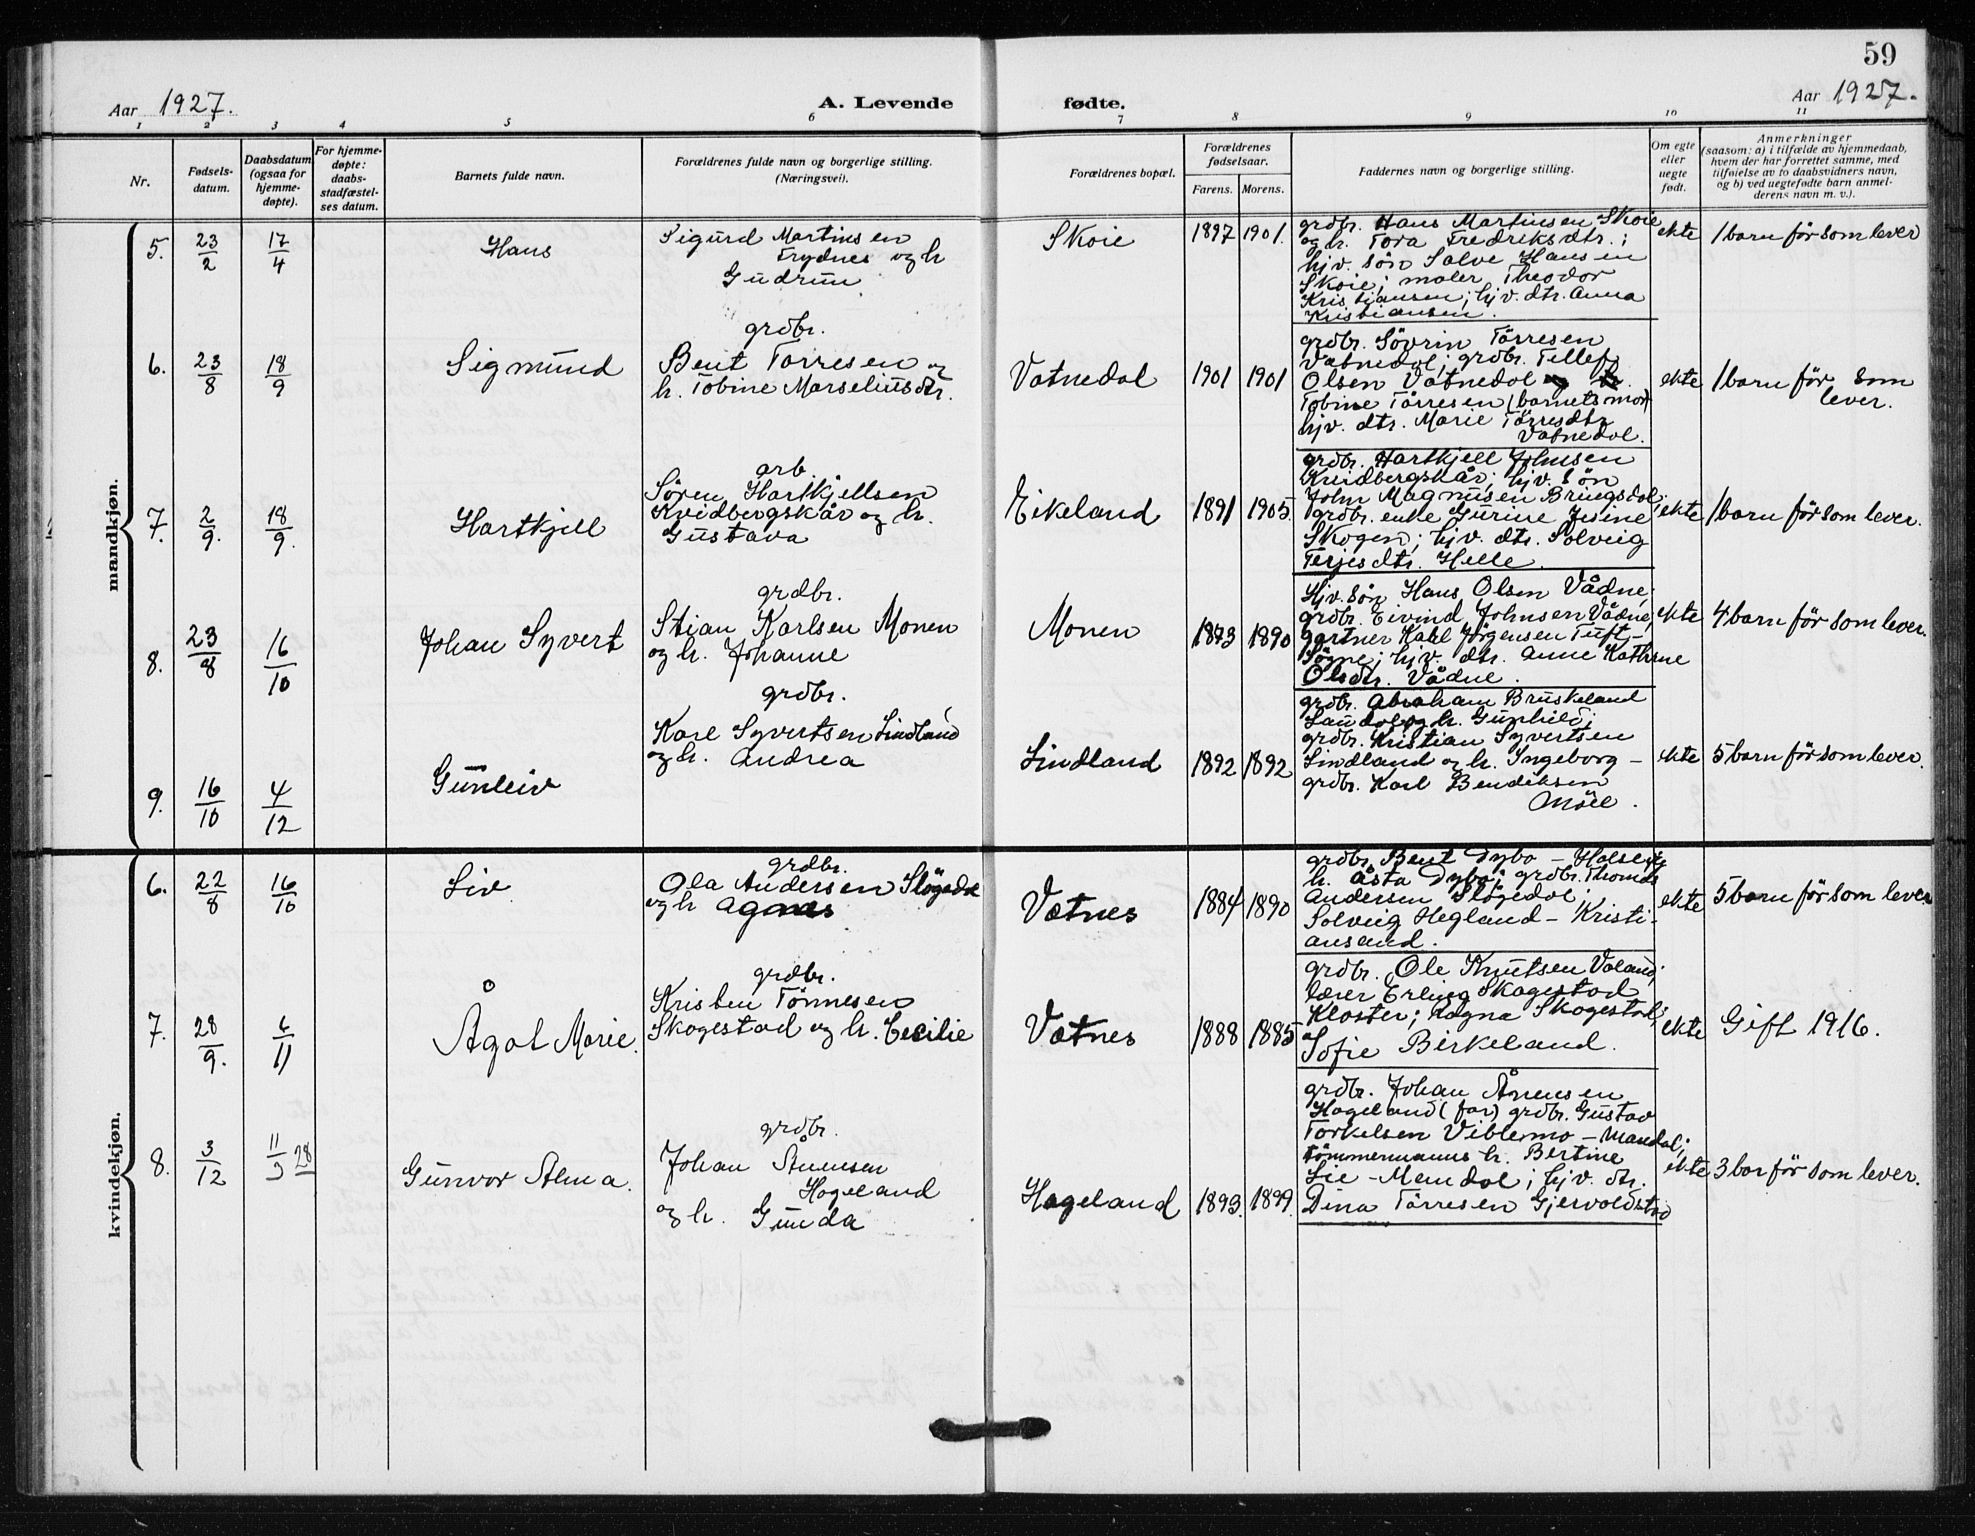 59
Aar 1927.
A. Levende
fødte.
Aar 1927.
1 2 3 4 5 6 7 8 9 10 11
Nr.
Fødsels-
datum.
Daabsdatum
(ogsaa for
hjemme-
døpte).
For hjemme-
døpte:
daabs-
stadfæstel-
ses datum.
Barnets fulde navn.
Forældrenes fulde navn og borgerlige stilling.
(Næringsvei).
Forældrenes bopæl.
Forældrenes
fødselsaar.
Farens. Morens.
Faddernes navn og borgerlige stilling.
Om egte
eller
uegte
født.
Anmerkninger
(saasom: a) i tilfælde av hjemmedaab,
hvem der har forrettet samme, med
tilføielse av to daabsvidners navn,
og b) ved uegtefødte barn anmel-
derens navn m. v.).
mandkjøn.
5. 23/2 17/4 Hans
Sigurd Martinsen
Frydnes og h
Gudrun
Skoie 1897 1901.
grdbr. Hans Martinsen Skoie
og h. Tora Fredriksdtr.;
hjv. søn Salve Hansen
Skoie; maler Theodor
Kristiansen; hjv. dtr. Anna
Kristiansen.
ekte 1 barn før som lever
6. 23/8 18/9 Sigmund
grdbr.
Bent Tørresen og
h. Tobine Marseliusdtr.
Vatnedal 1901 1901
grdbr. Søvrin Tørresen
Vatnedal; grdbr. Tellef
Olsen Vatnedal og h.
Tobine Tørresen (barnets mor)
hjv. dtr. Marie Tørresdtr
Vatnedal.
ekte 1 barn før som
lever.
7. 2/9. 18/9. Hartkjell
arb.
Søren Hartkjellsen
Kvidbergskår og h.
Gustava
Eikeland 1891 1905.
grdbr. Hartkjell Johnsen
Kvidbergskår; hjv. søn
John Magnusen Bringsdal;
grdbr. enke Gurine Jisine
Skogen; hjv. dtr. Solveig
Terjesdtr. Helle.
ekte 1 barn før som lever.
8. 23/8 16/10 Johan Syvert
grdbr.
Stian Karlsen Monen
og h. Johanne
Monen 1873 1890
Hjv. søn Hans Olsen Vådne;
grdbr. Eivind Johnsen Vådne;
gartner Kahl Jørgensen Tuft-
Søgne; hjv. dtr. Anne Kathrine
Olsdtr. Vådne.
ekte 4 barn før som lever.
9. 16/10 4/12 Gunleiv
grdbr.
Karl Syvertsen Lindland
og h. Andrea
Lindland 1892 1892
grdbr. Abraham Bruskeland
Laudal og h. Gunhild;
grdbr. Kristian Syvertsen
Lindland og h. Ingeborg -
grdbr. Karl Bendiksen
Møll.
ekte 5 barn før som lever.
kvindekjøn.
6. 22/8 16/10 Liv
grdbr.
Ola Andersen Sløgedal
og h Agnes
Vatnes 1884 1890
grdbr. Bent Dybo - Halse og
h. Åsta Dybo; grdbr. Thomas
Andersen Sløgedal;
Solveig Hegland - Kristi-
ansand.
ekte 5 barn før som lever
7. 28/9. 6/11 Ågot Marie.
grdbr.
Kristen Tønnesen
Skogestad og h. Cecilie
Vatnes 1888 1885
grdbr. Ole Knutsen Valand;
lærer Erling Skagestad
Kloster; Ragna Skogestad;
Sofie Birkeland.
ekte Gift 1916.
8. 3/12 11/3 28 Gunvor Alma.
grdbr.
Johan Ånensen
Hageland
og h. Gunda
Hageland 1893. 1899.
grdbr. Johan Ånensen
Hageland (far) grdbr. Gustav
Torkelsen Viblemo - Mandal;
tømmermanns h. Bertine
Lie - Mandal; hjv. dtr.
Dina Tørresen Gjervoldstad
ekte 3 bar før som lever.